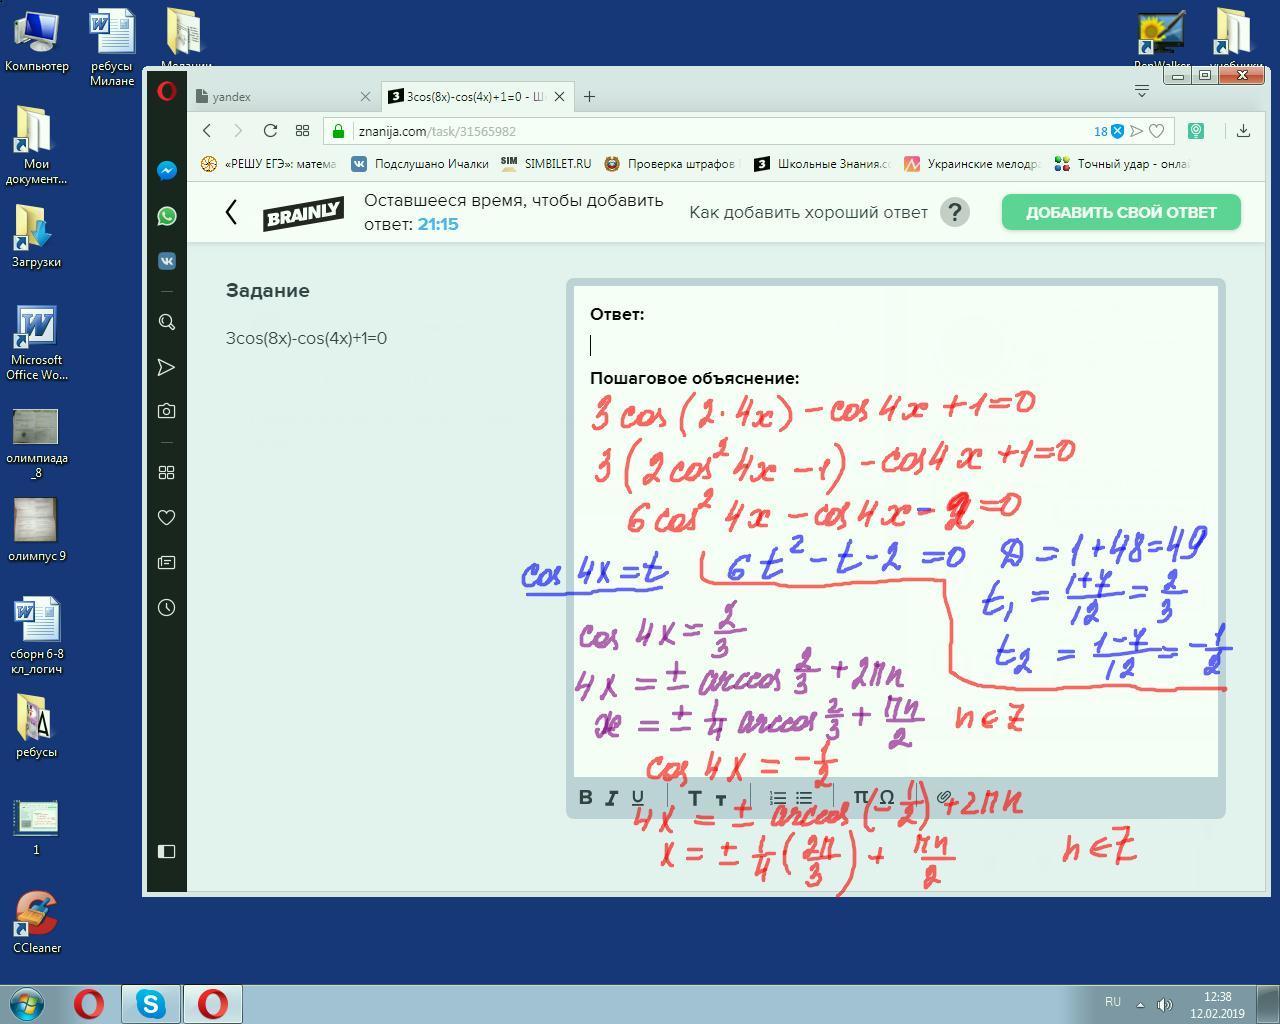 Компьютер
ребусы Милане
Мои документ...
Загрузки
Microsoft Office Wo...
олимпиада_8
олимпус 9
сборн 6-8 кл_логич
ребусы
1
CCleaner
yandex
3cos(8x)-cos(4x)+1=0 - Ш
znanija.com/task/31565982
18
«РЕШУ ЕГЭ»: матема
Подслушано Ичалки
SIM SIMBILET.RU
Проверка штрафов
Школьные Знания.cc
Украинские мелодр
Точный удар - онла
BRAINLY
Оставшееся время, чтобы добавить
ответ: 21:15
Как добавить хороший ответ ?
ДОБАВИТЬ СВОЙ ОТВЕТ
Задание
3cos(8x)-cos(4x)+1=0
Ответ:
Пошаговое объяснение:
3 cos (2·4x) - cos 4x + 1 = 0
3 (2cos² 4x - 1) - cos 4x + 1 = 0
6 cos² 4x - cos 4x - 2 = 0
cos 4x = t 6t² - t - 2 = 0 D = 1 + 48 = 49
t₁ = (1+7)/12 = 2/3
t₂ = (1-7)/12 = -1/2
cos 4x = 2/3
4x = ± arccos 2/3 + 2πn
x = ± 1/4 arccos 2/3 + πn/2 n ∈ Z
cos 4x = -1/2
B I U T т π Ω
4x = ± arccos (-1/2) + 2πn
x = ± 1/4 (2π/3) + πn/2 n ∈ Z
RU
12:38
12.02.2019